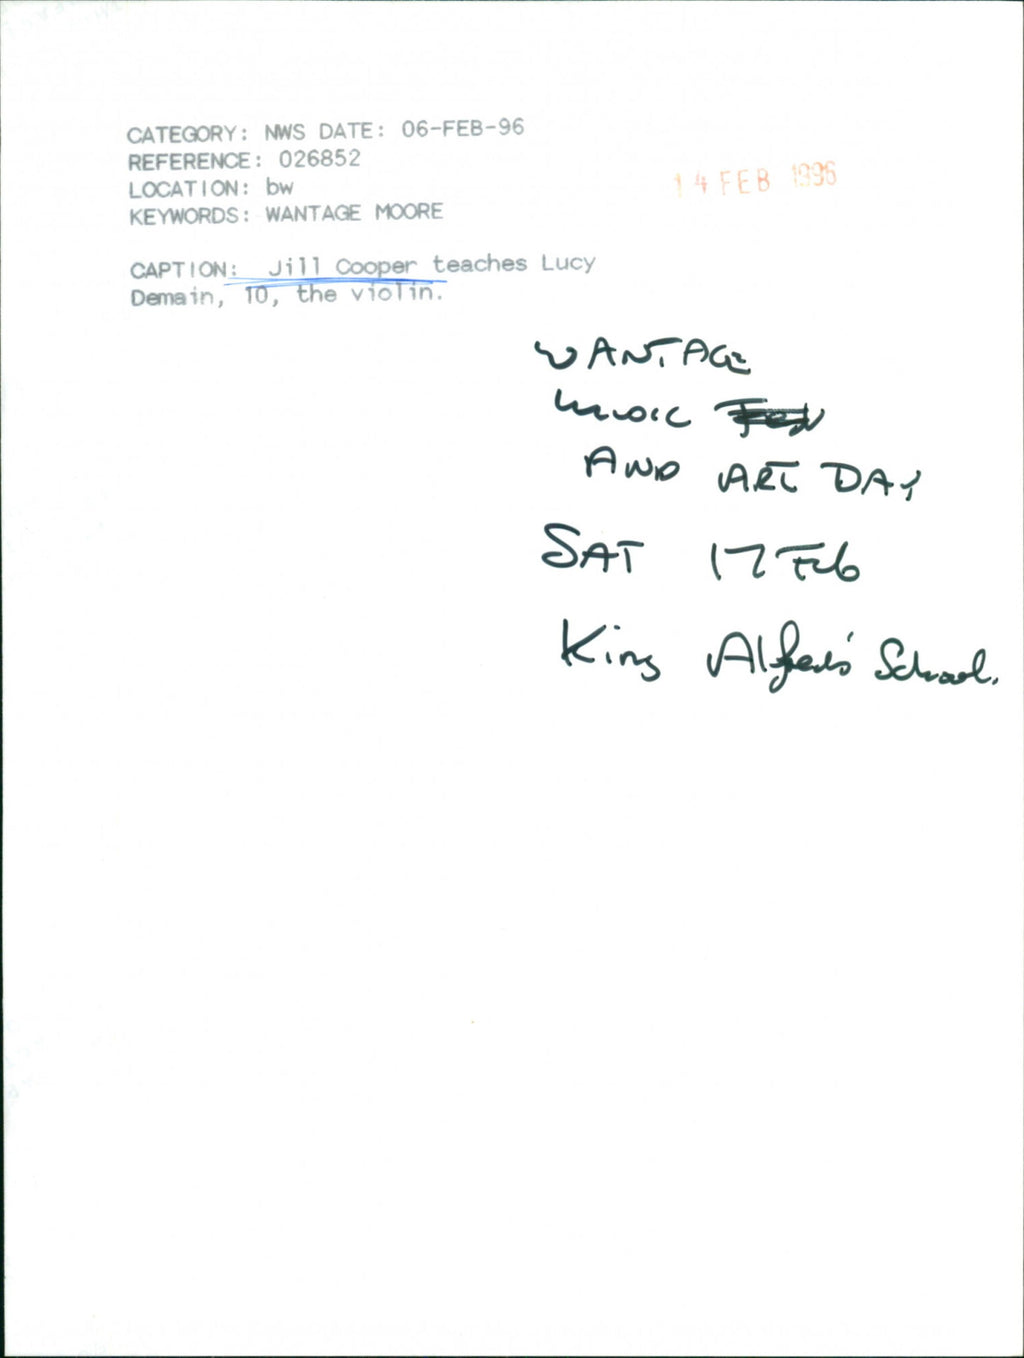 CATEGORY: NWS DATE: 06-FEB-96
REFERENCE: 026852
LOCATION: bw
KEYWORDS: WANTAGE MOORE
14 FEB 1996
CAPTION: Jill Cooper teaches Lucy
Demain, 10, the violin.
WANTAGE
MUSIC
AND ART DAY
SAT 17 Feb
King Alfred's School.